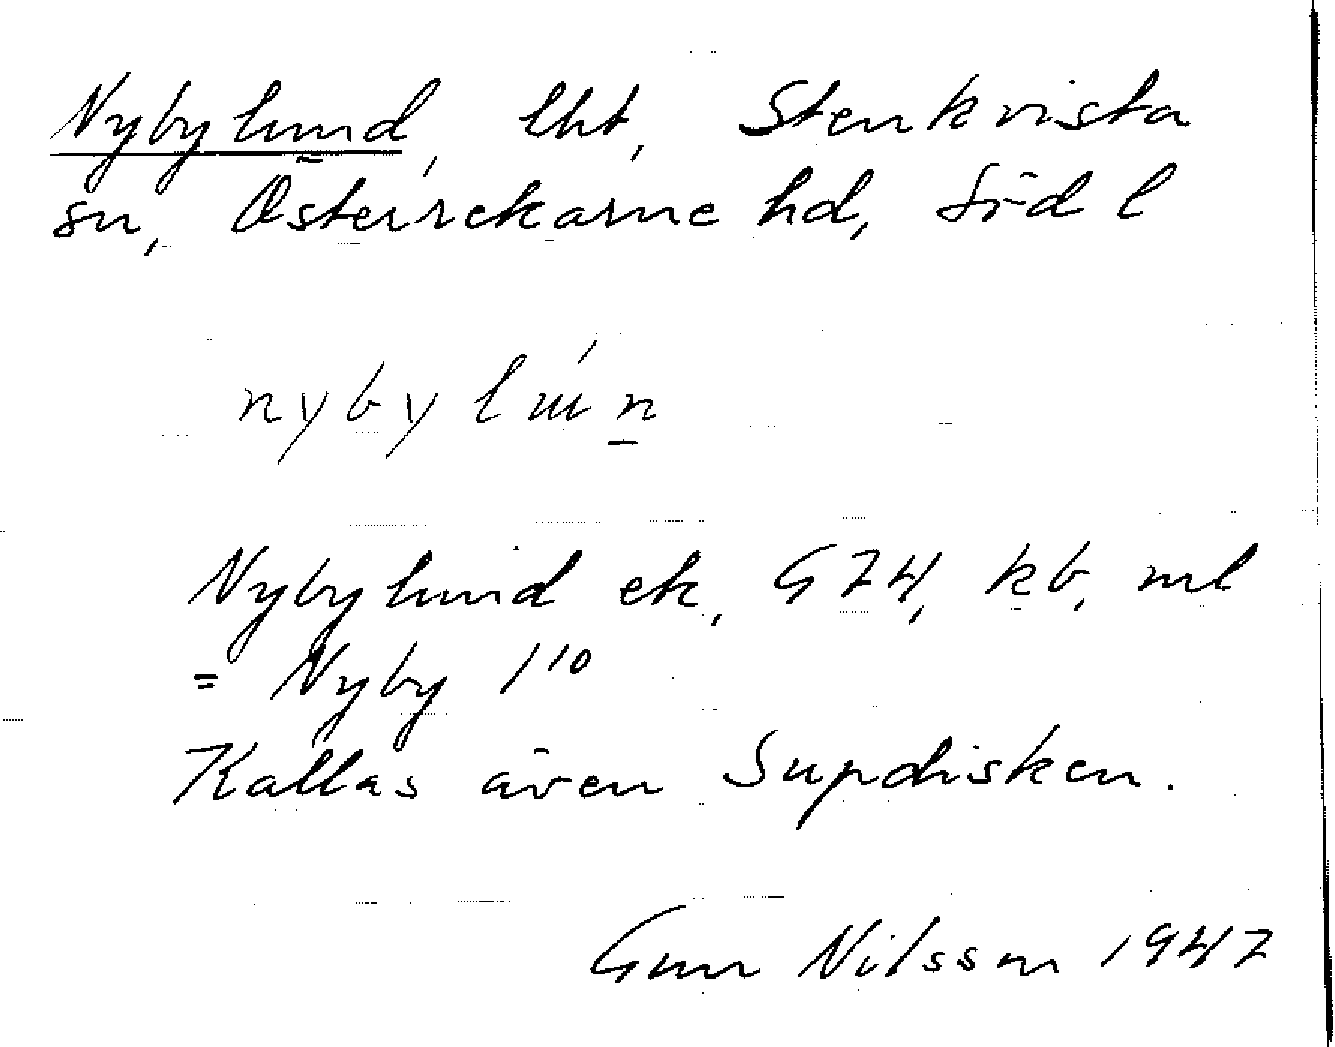 Nybylund, lht, Stenkvista
sn, Österrekarne hd, Södl
nybylún
Nybylund ek, G74, kb, ml
= Nyby 1¹⁰
Kallas även Supdisken.
Gun Nilsson 1947